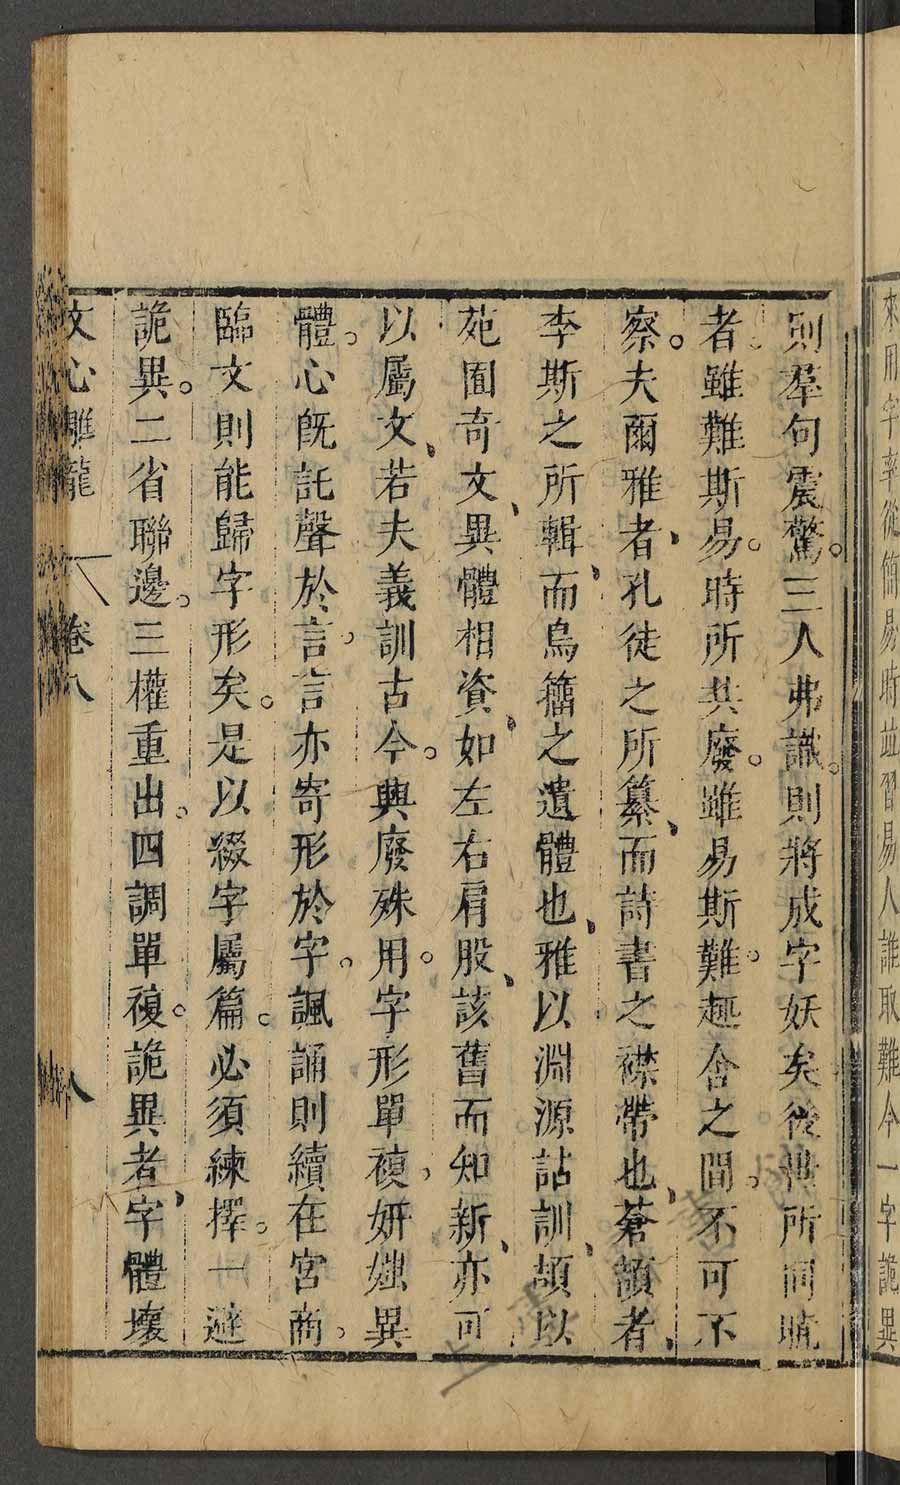 來用字率從簡易時並習易人誰取難今一字詭異
則羣句震驚。三人弗識。則將成字妖矣後世所同曉
者。雖難斯易。時所共廢。雖易斯難。趣舍之間。不可不
察。夫爾雅者、孔徒之所纂、而詩書之襟帶也、蒼頡者、
李斯之所輯、而鳥籀之遺體也、雅以淵源詁訓、頡以
苑囿奇文、異體相資、如左右肩股、該舊而知新、亦可
以屬文、若夫義訓古今。興廢殊用。字形單複。妍媸異
體。心旣託聲於言。言亦寄形於字。諷誦則績在宮商。
臨文則能歸字形矣。是以綴字屬篇。必須練擇。一避
詭異。二省聯邊。三權重出。四調單複。詭異者、字體壞
文心雕龍 卷八 八